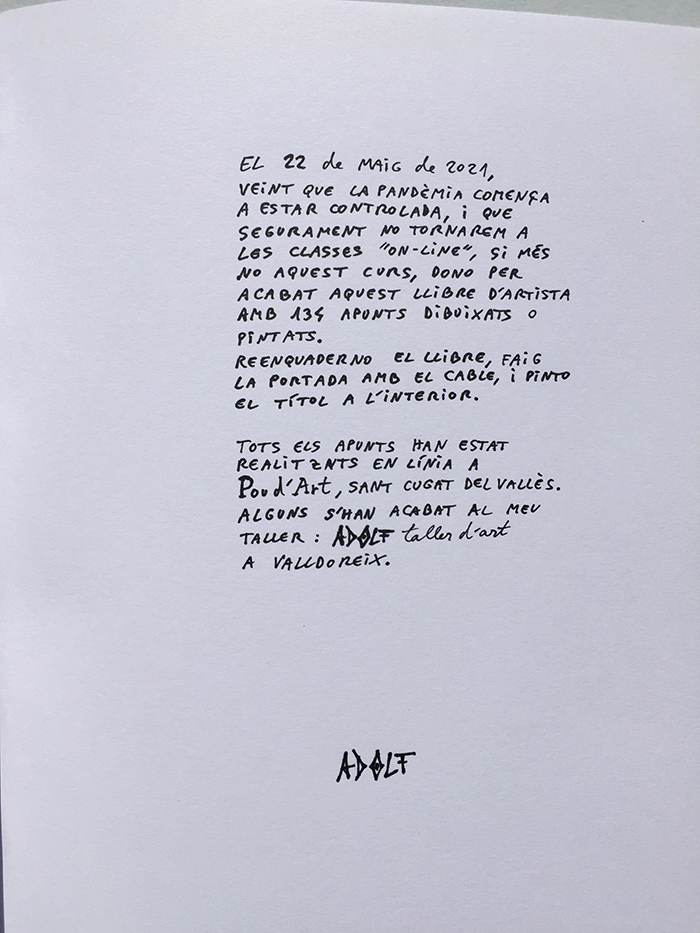 EL 22 de MAiG de 2021,
VEiNT QUE LA PANDÈMIA COMENÇA
A ESTAR CONTROLADA, i QUE
SEGURAMENT NO TORNAREM A
LES CLASSES "ON-LiNE", Si MÉS
NO AQUEST CURS, DONO PER
ACABAT AQUEST LLIBRE D'ARTISTA
AMB 134 APUNTS DiBUiXATS O
PiNTATS.
REENQUADERNO EL LLIBRE, FAiG
LA PORTADA AMB EL CABLE, i PiNTO
EL TÍTOL A L'INTERIOR.
TOTS ELS APUNTS HAN ESTAT
REALiTZATS EN LÍNIA A
Pou d'Art, SANT CUGAT DEL VALLÈS.
ALGUNS S'HAN ACABAT AL MEU
TALLER: ADOLF taller d'art
A VALLDOREiX.
ADOLF